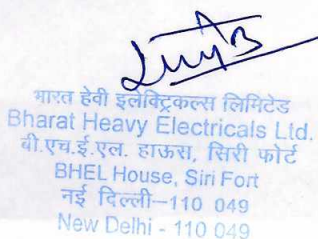 भारत हेवी इलेक्ट्रिकल्स लिमिटेड
Bharat Heavy Electricals Ltd.
बी.एच.ई.एल. हाऊस, सिरी फोर्ट
BHEL House, Siri Fort
नई दिल्ली–110 049
New Delhi - 110 049